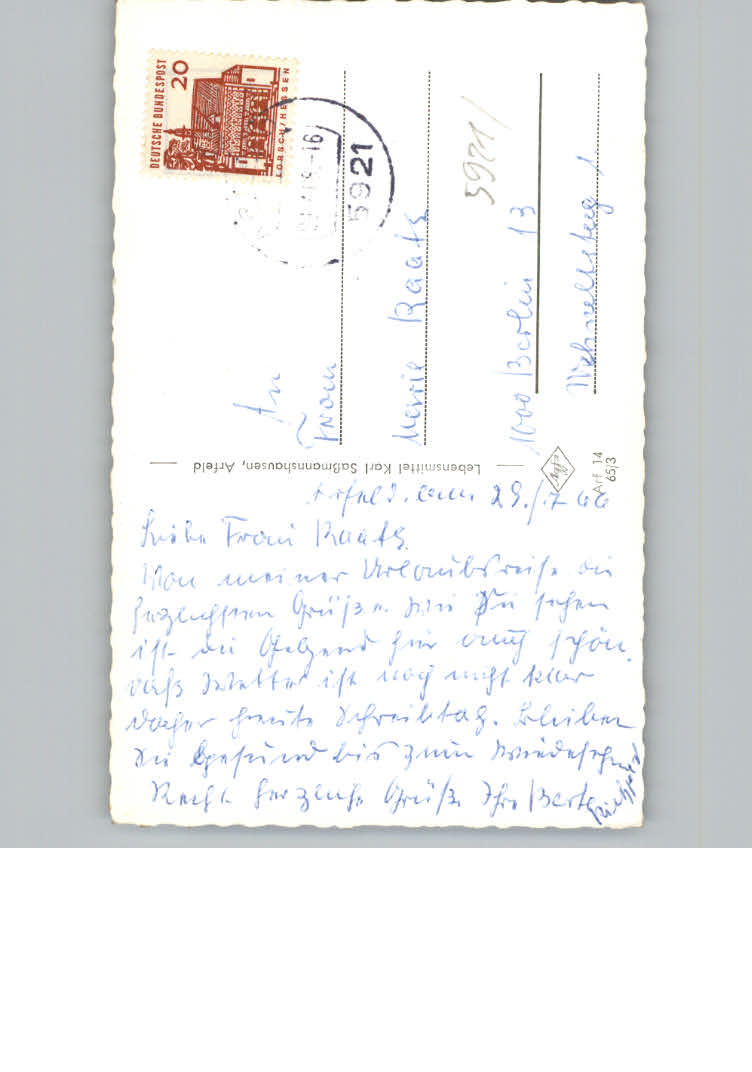 DEUTSCHE BUNDESPOST
20
LORSCH/HESSEN
-16
5921
5921/
An
Frau
Raatz
1000 Berlin 13
1
Lebensmittel Karl Saßmannshausen, Arfeld
Arf 14
65/3
Arfeld, am 29./7 66
Liebe Frau Raatz
Von meiner Urlaubsreise die
herzlichsten Grüße. Wie Sie sehen
ist die Gegend hier auch schön.
daß Wetter ist noch nicht klar
daher heute Schreibtag. Bleiben
Sie gesund bis zum Wiedersehn
Recht herzliche Grüße Ihre Berta